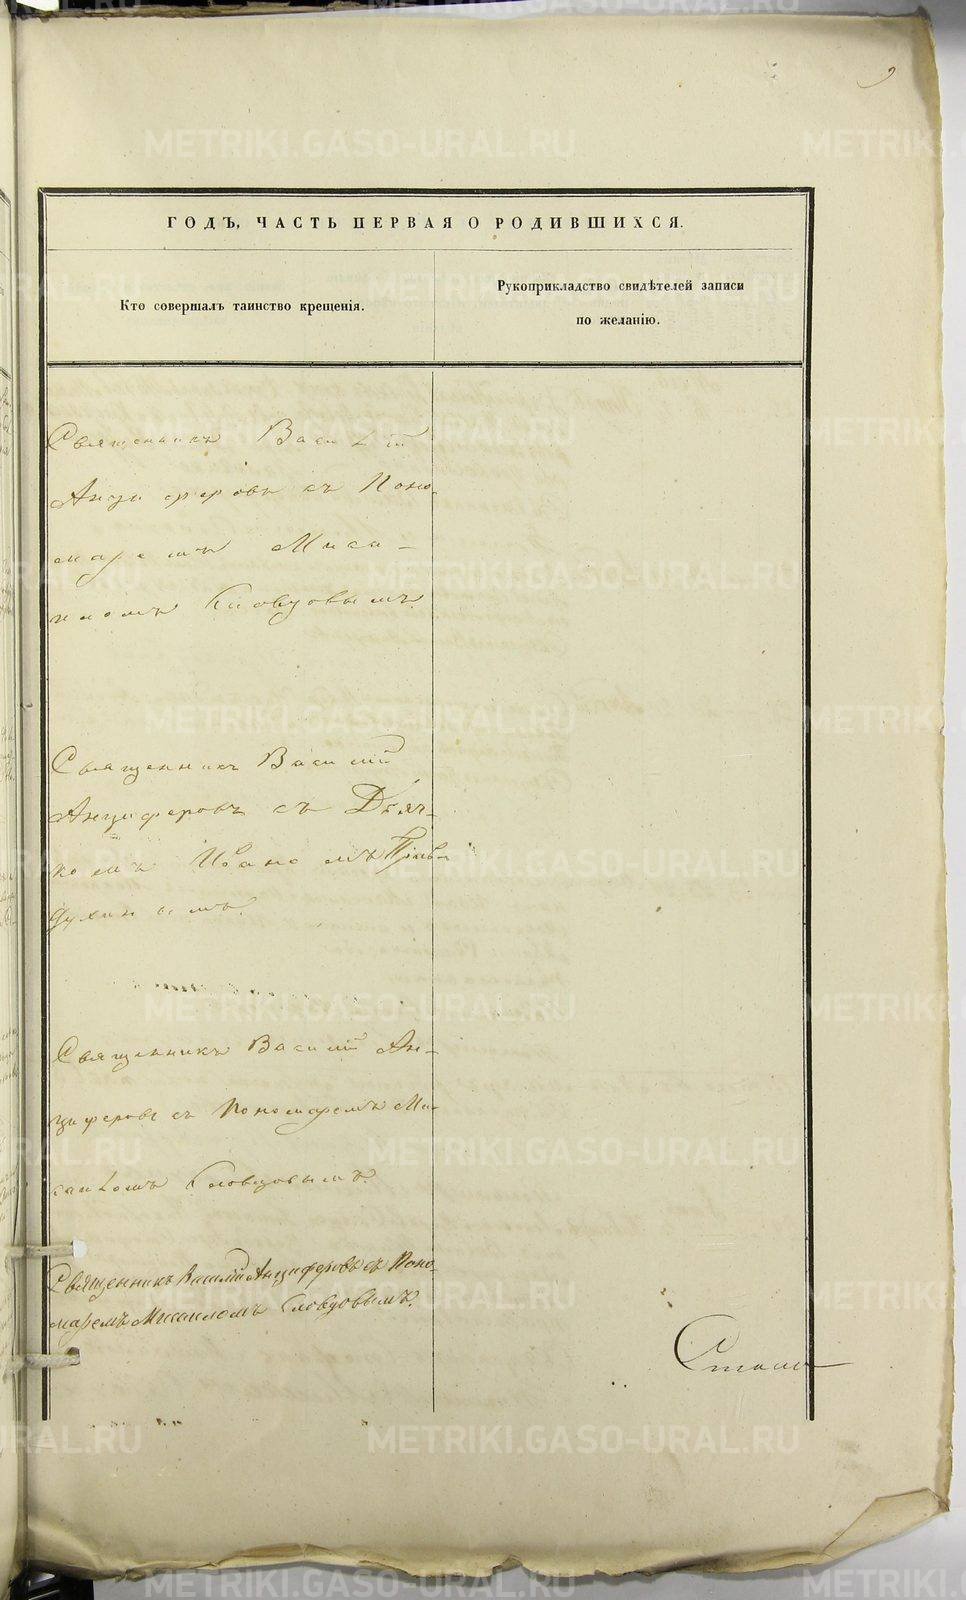 9
ГОДЪ, ЧАСТЬ ПЕРВАЯ О РОДИВШИХСЯ.
Кто совершалъ таинство крещенія.
Рукоприкладство свидѣтелей записи
по желанію.
Священникъ Василій
Анциферовъ съ Поно-
маремъ Миха-
иломъ Словцовымъ.
Священникъ Василій
Анциферовъ съ Дьяч-
комъ Иваномъ
Священникъ Василій Ан-
циферовъ съ Пономаремъ Ми-
хаиломъ Словцовымъ.
Священникъ Василій Анциферовъ съ Поно-
маремъ Михаиломъ Словцовымъ.
METRIKI.GASO-URAL.RU